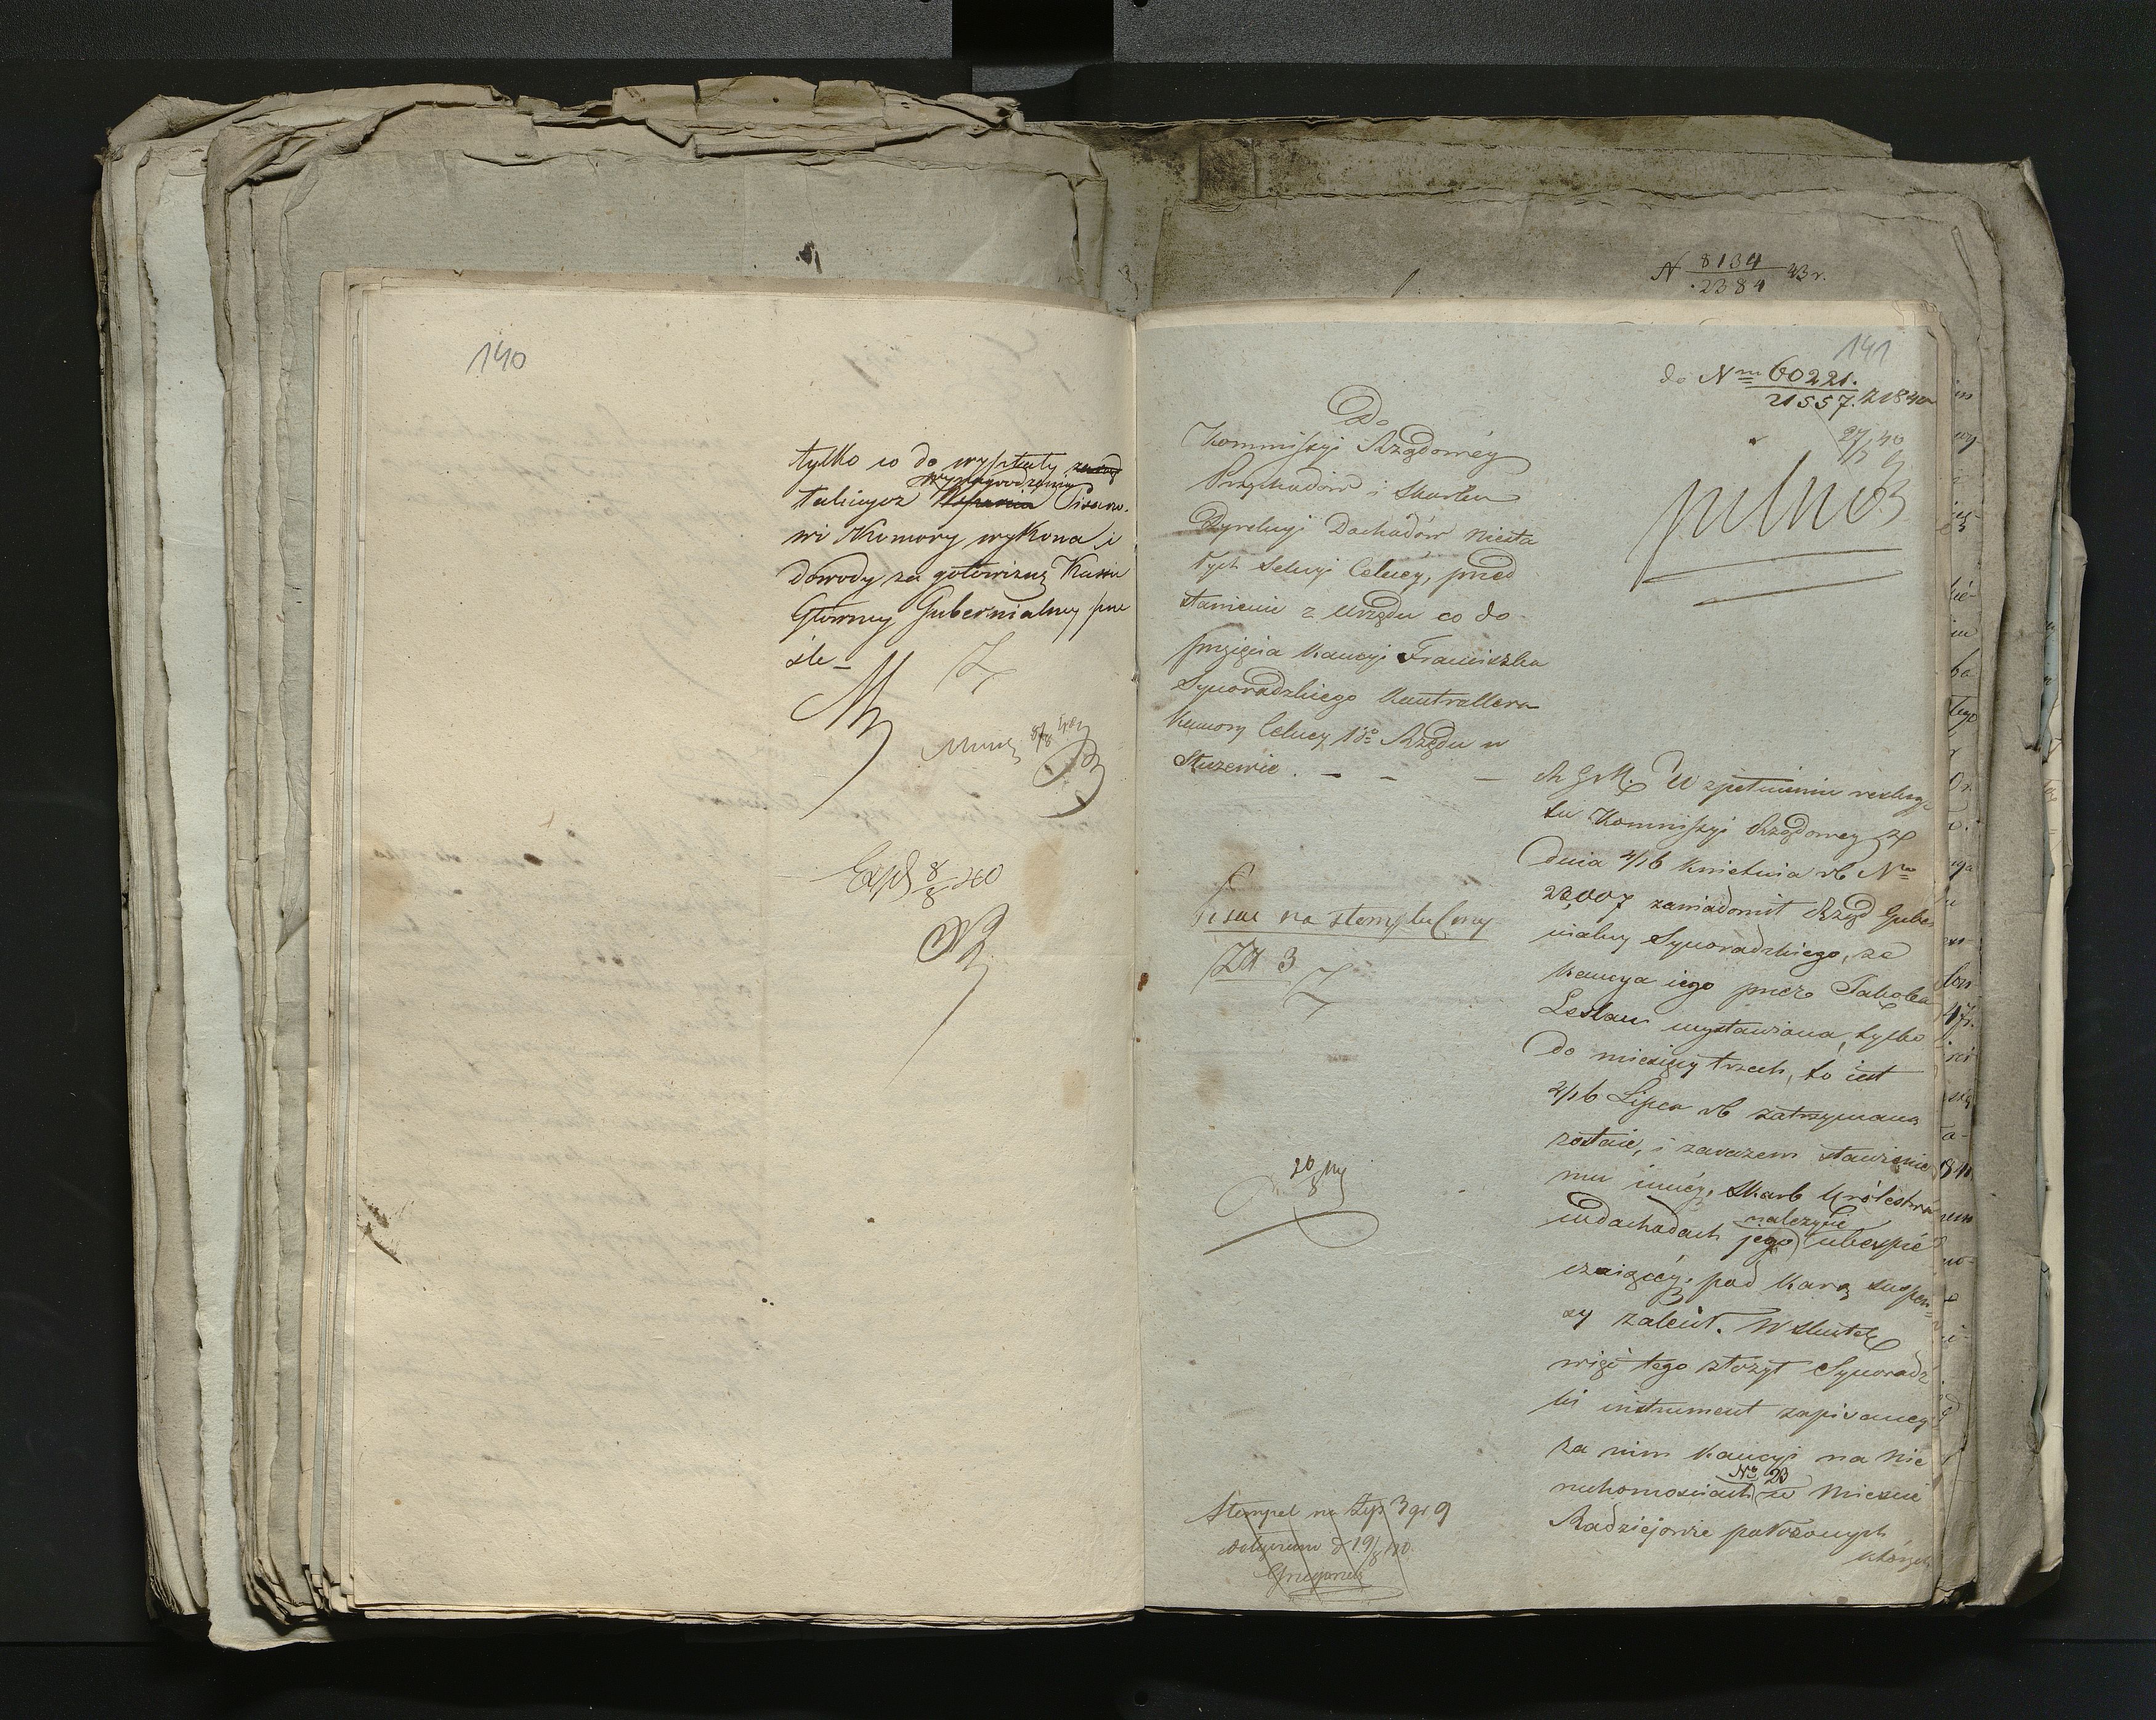 N 8134/2384 43 r.
140
tylko co do wypłaty
wynagrodzenia
takiegoż Pisarzo-
wi Komory wykona i
dowody za gotowiznę Kassie
Główney Gubernialney prze
śle –
Exp 8/8 40
141
do Nru 60221./21557. z 1840
27/7 40
pilno
Do
Kommissyi Rządowéy
Przychodów i Skarbu
Dyrekcyi Dochodów Niesta
łych Sekcyi Celnéy, przed
stawienie z Urzędu co do
przyięcia Kaucyi Franciszka
Synoradzkiego Kontrollera
Komory Celnéy 1go Rzędu w
Służewie. – – –
Pisać na stemplu ceny
Zł 3
20/8
Stempel na Złp 3 gr 9
d 19/8 40.
R. G. M. W spełnieniu reskryp
tu Kommissyi Rządowey z
dnia 4/16 Kwietnia rb Nro
23,007 zawiadomił Rząd Guber
nialny Synoradzkiego, że
Kaucya iego przez Jakóba
Leslau wystawiona, tylko
do miesięcy trzech, to iest
4/16 Lipca rb zatrzymana
zostaie, i zarazem stawienie
mu innéy, Skarb Królestwa
należycie
w dochodach jego ubezpie
czaiącéy, pod karą suspen-
sy zalecił. W skutek
więc tego złożył Synoradz
ki instrument zapisanéy
za nim Kaucyi na nie
No 23
ruchomościach w Mieście
Radziejowie położonych
których